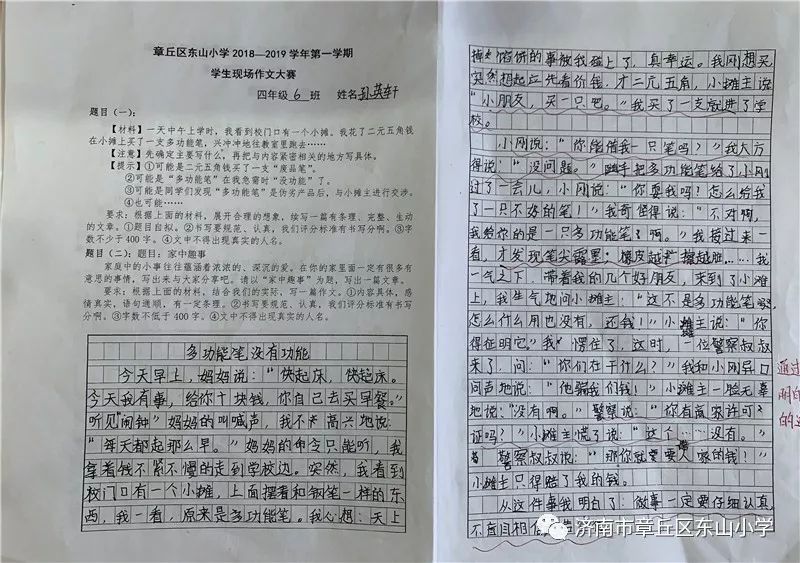 章丘区东山小学 2018—2019 学年第一学期
学生现场作文大赛
四年级 6 班 姓名 孔英轩
题目(一):
【材料】一天中午上学时,我看到校门口有一个小摊。我花了二元五角钱
在小摊上买了一支多功能笔,兴冲冲地往教室里跑去……
【注意】先确定主要写什么,再把与内容紧密相关的地方写具体。
【提示】①可能是二元五角钱买了一支“废品笔”。
②可能是“多功能笔”在我急需时“没功能”了。
③可能是同学们发现“多功能笔”是伪劣产品后,与小摊主进行交涉。
④也可能……
要求:根据上面的材料,展开合理的想象,续写一篇有条理、完整、生动
的文章。①题目自拟。②书写要规范、认真,我们评分标准有书写分啊。③字
数不少于 400 字。④文中不得出现真实的人名。
题目(二):题目:家中趣事
家庭中的小事往往蕴涵着浓浓的、深沉的爱。在你的家里面一定有很多有
意思的事情,写出来与大家分享吧。请以“家中趣事”为题,写出一篇文章。
要求:根据上面的材料,结合我们的实际,写一篇作文。①内容具体,感
情真实,语句通顺,有一定条理。②书写要规范、认真,我们评分标准有书写
分啊。③字数不低于 400 字。④文中不得出现真实的人名。
多功能笔没有功能
今天早上,妈妈说:“快起床,快起床。
今天我有事,给你十块钱,你自己去买早餐。”
听见“闹钟”妈妈的叫喊声,我不高兴地说:
“每天都起那么早。”妈妈的命令只能听,我
拿着钱不紧不慢的走到学校边。突然,我看到
校门口有一个小摊,上面摆着和钢笔一样的东
西,我一看,原来是多功能笔。我心想:天上
掉馅饼的事被我碰上了,真幸运。我刚想买,
突然想起应先看价钱,才二元五角,小摊主说:
“小朋友,买一只吧。”我买了一支就进了学
校。
小刚说:“你能借我一只笔吗?”我大方
得说:“没问题。”随手把多功能笔给了小刚
过了一会儿,小刚说:“你耍我吗!怎么给我
了一只不好的笔!”我奇怪得说:“不对啊,
我给你的是一只多功能笔了啊。”我接过来一
看,才发现笔尖露墨;橡皮越擦越脏……我
一气之下,带着我的几个好朋友,来到了小摊
上,我生气地问小摊主:“这不是多功能笔吗?
怎么什么用也没有,还钱!”小摊主说:“你
得证明它”我愣住了,这时,一位警察叔叔
来了,问:“你们在干什么?”我和小刚异口
同声地说:“他骗我们钱!”小摊主一脸无辜
地说:“没有啊。”警察说:“你有商家许可
证吗?”小摊主慌了说:“这个……没有。”
警察叔叔说:“那你就要
小摊主只得赔了我的钱。
从这件事我明白了:做事一定要仔细认真,
不盲目相信
通过
明白
的
济南市章丘区东山小学